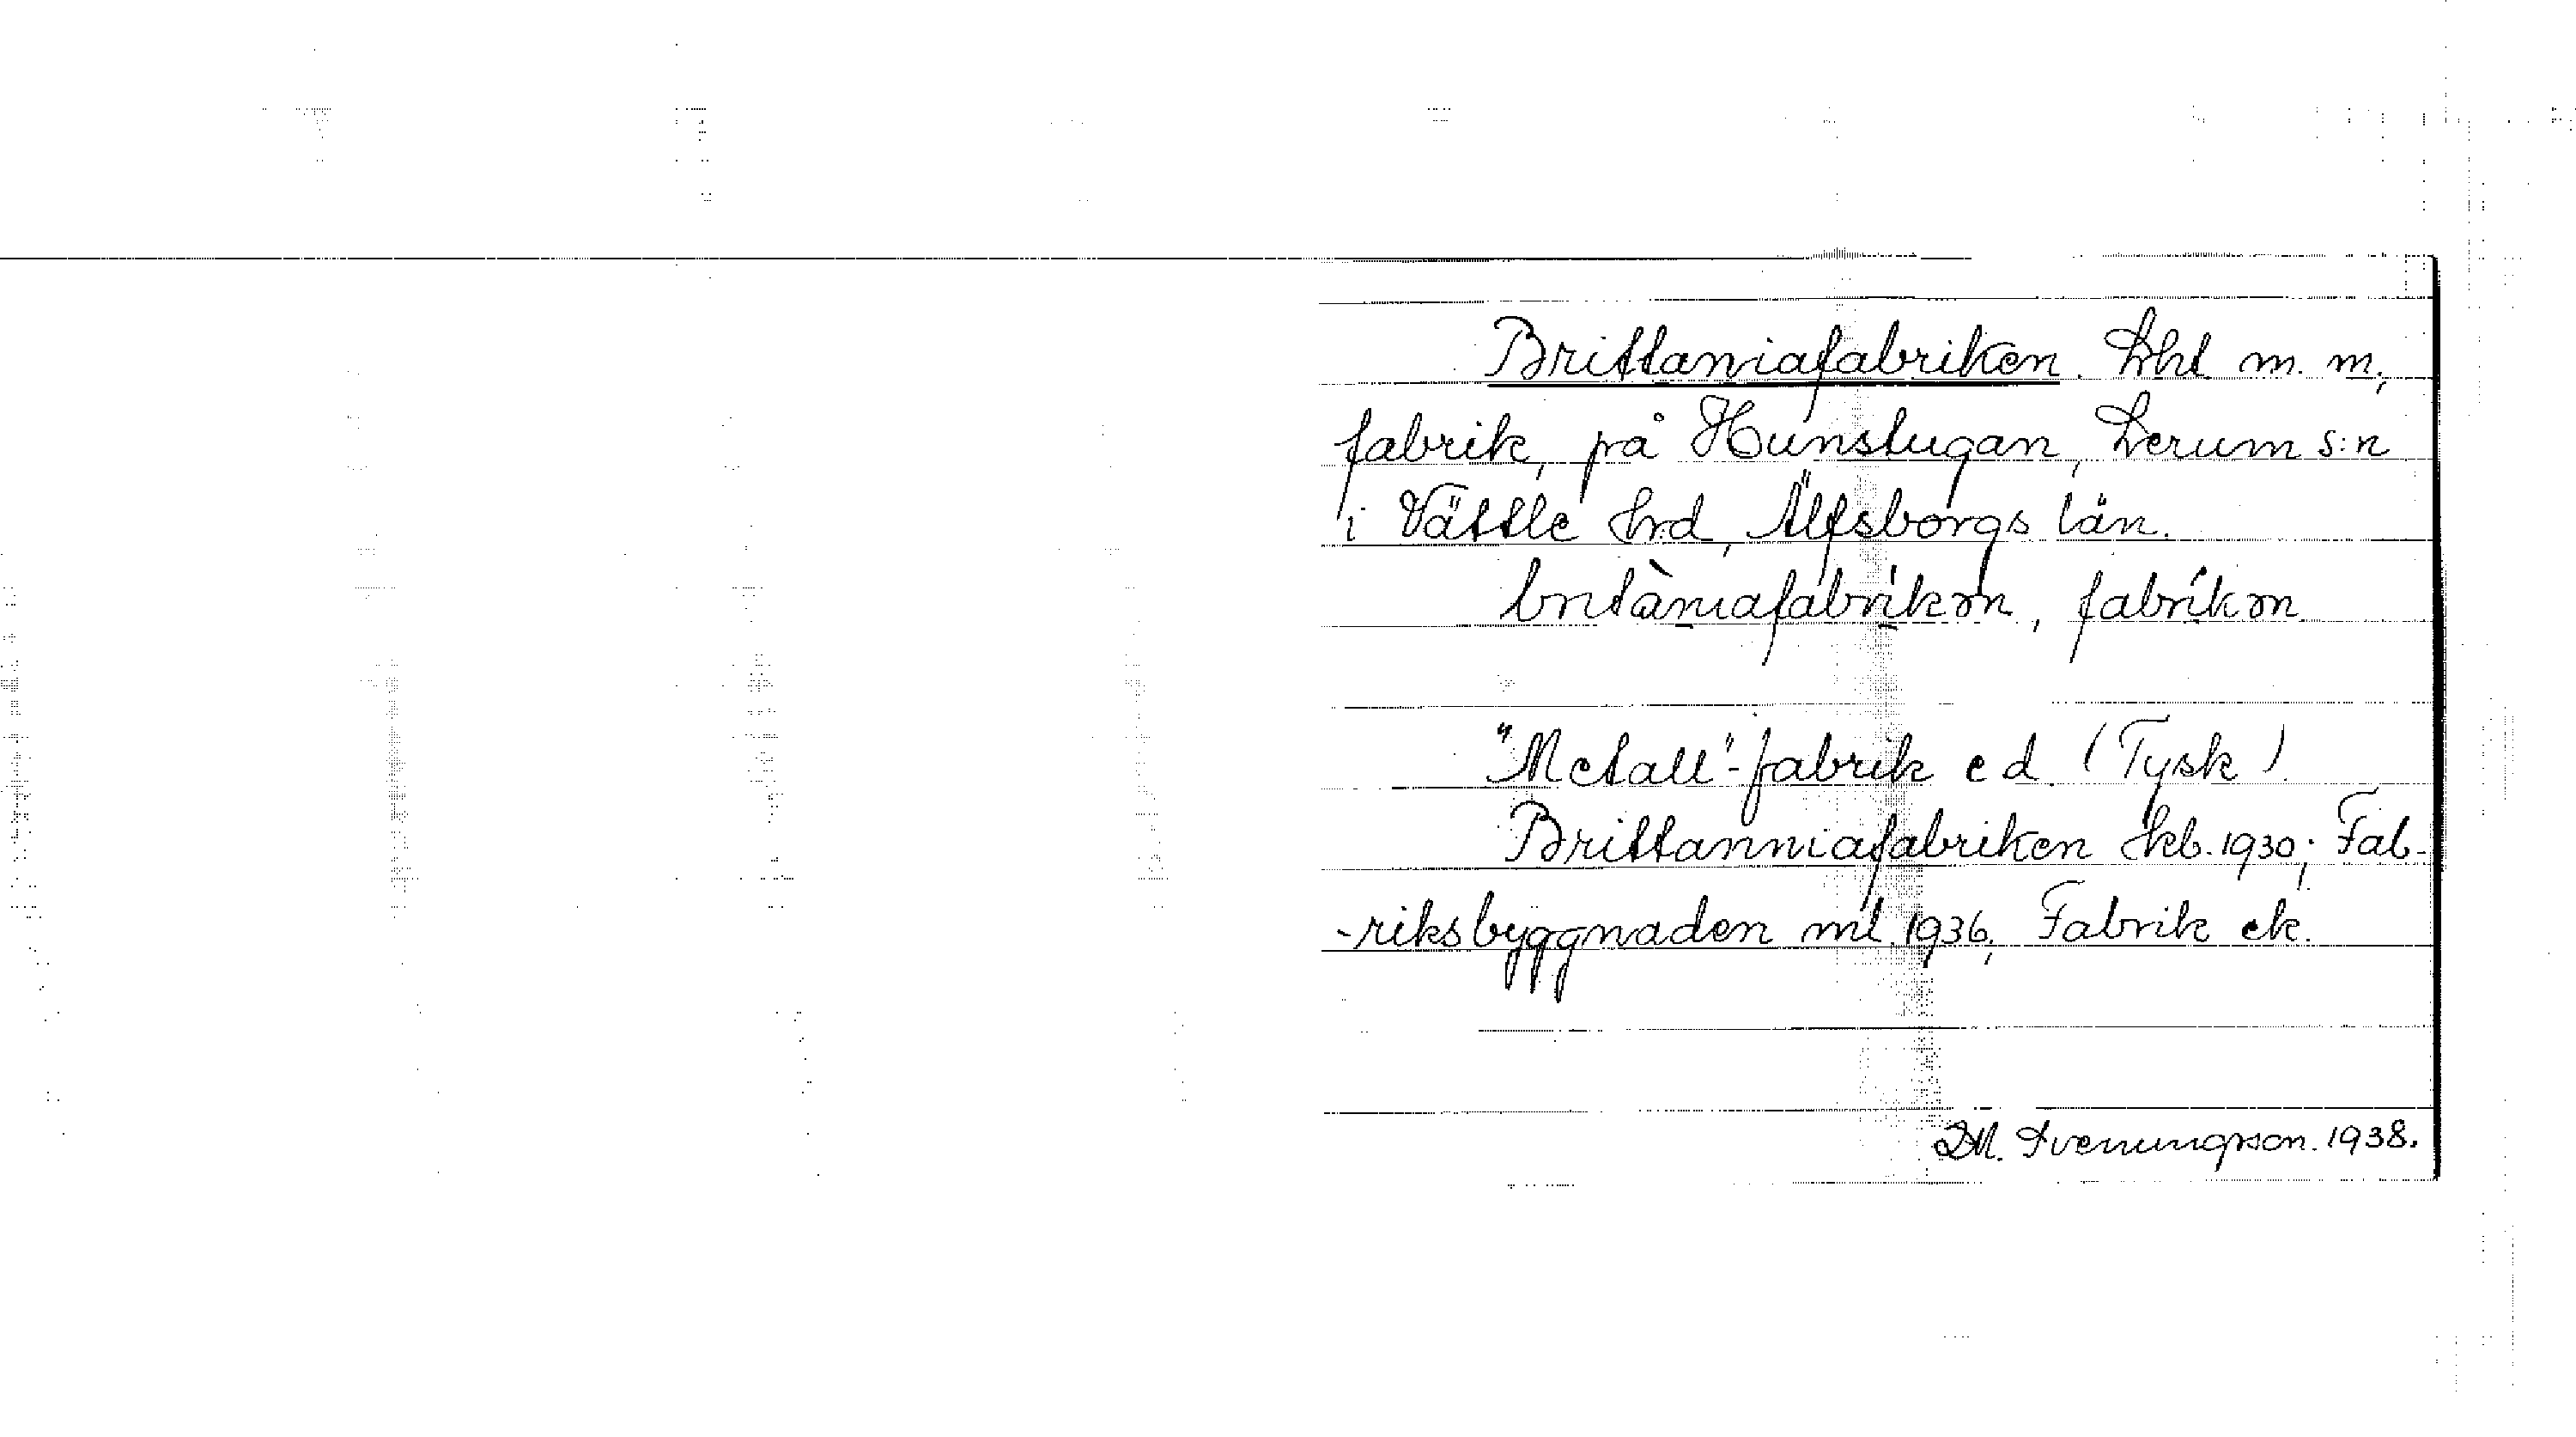 Brittaniafabriken. Lht m. m.,
fabrik, på Hunstugan, Lerum s:n
i Vättle hrd, Älfsborgs län.
britàniafabrikən, fabrikən
"Metall"-fabrik e d. (Tysk).
Brittanniafabriken hkb. 1930; Fab-
-riksbyggnaden ml. 1936, Fabrik ek.
DM. Svenungsson. 1938.